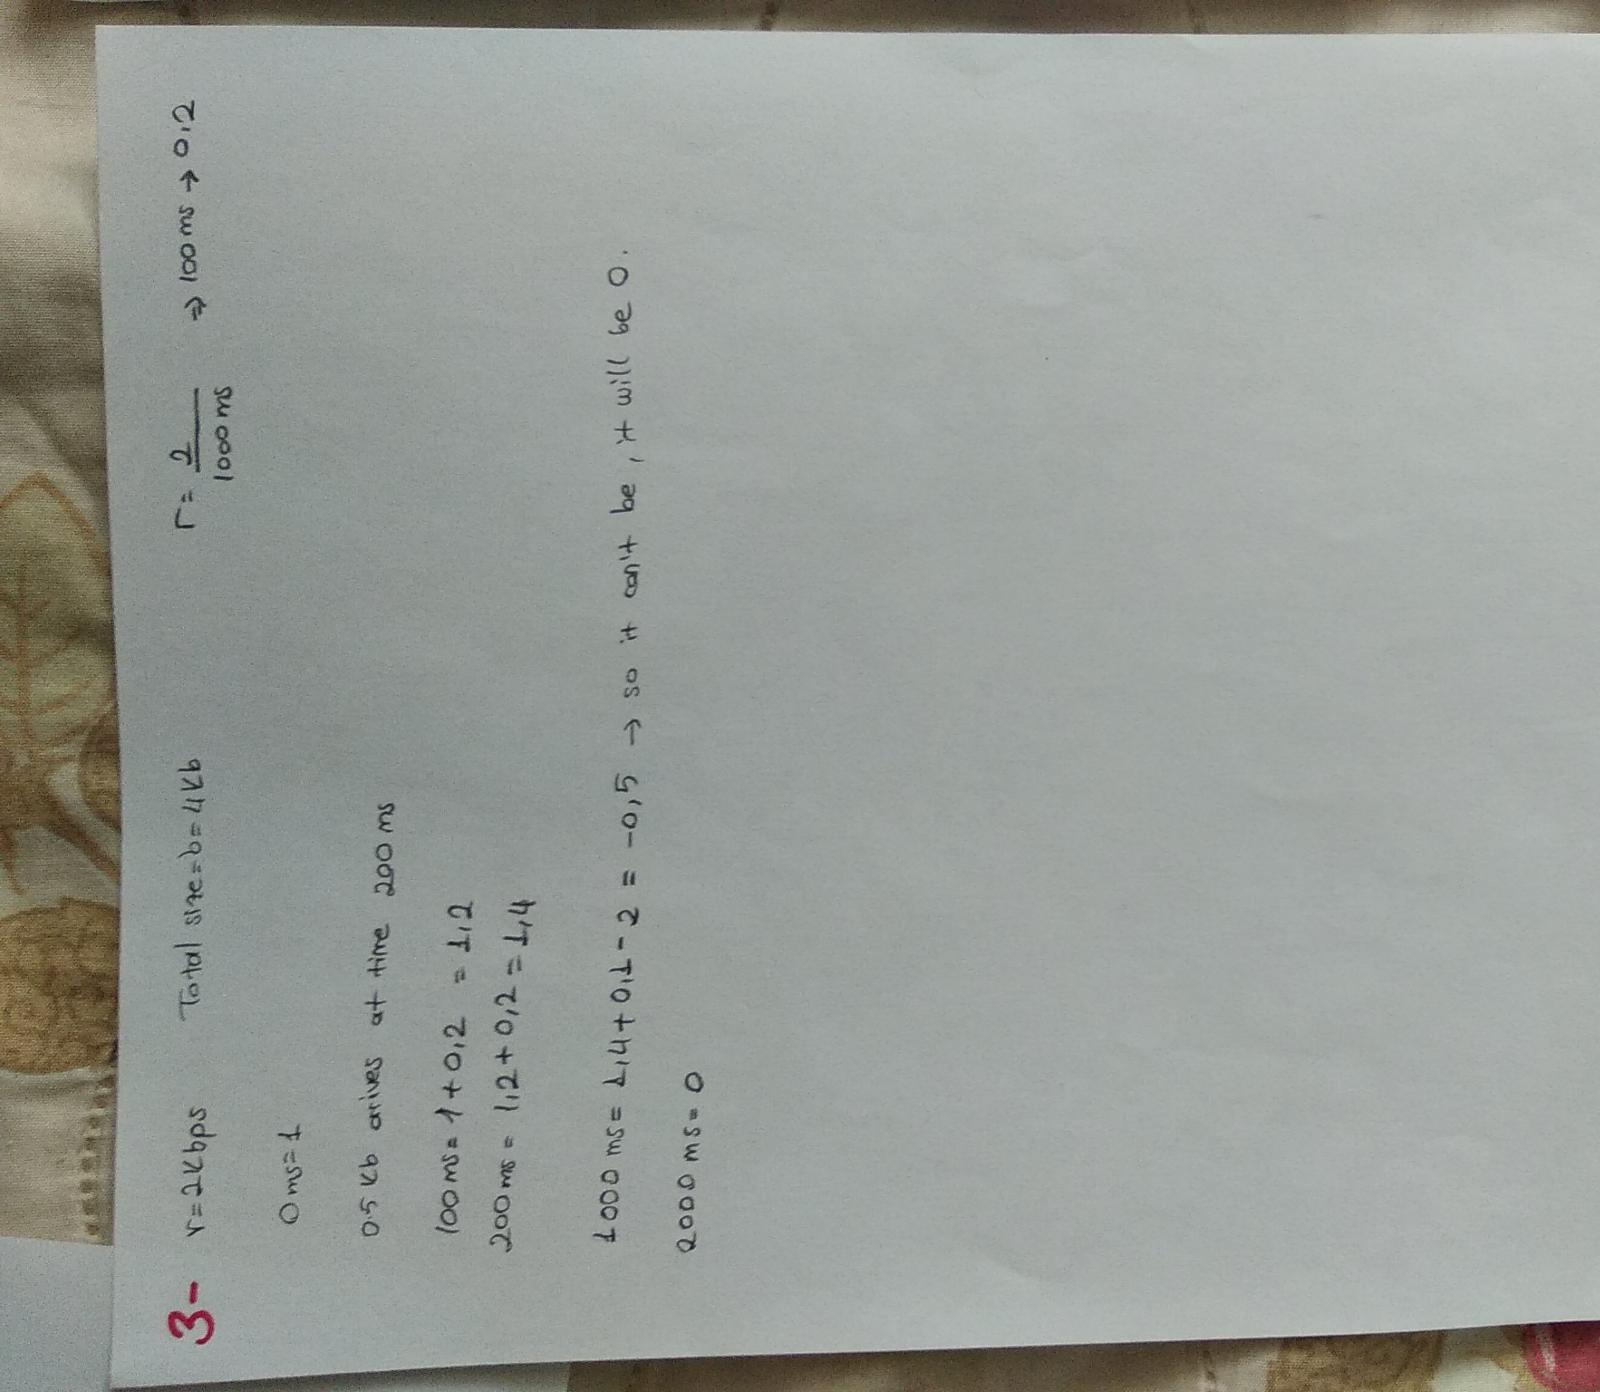 3- r=2Kbps Total size=b=4Kb r= 2 / 1000 ms ⇒ 100 ms → 0,2
0 ms=1
0.5 Kb arives at time 200 ms
100 ms= 1+0,2 = 1,2
200 ms = 1,2+0,2 = 1,4
1000 ms= 1,4+0,1-2 = -0,5 → so it can't be, it will be 0.
2000 ms= 0